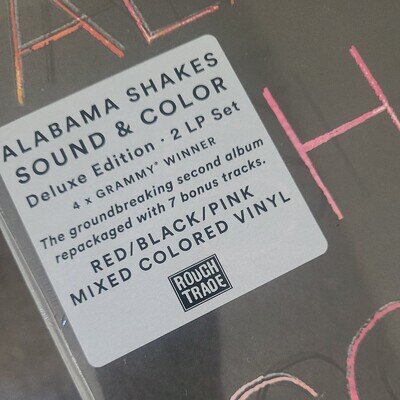 ALABAMA SHAKES
SOUND & COLOR
Deluxe Edition · 2 LP Set
4 x GRAMMY® WINNER
The groundbreaking second album
repackaged with 7 bonus tracks.
RED/BLACK/PINK
MIXED COLORED VINYL
ROUGH
TRADE
H